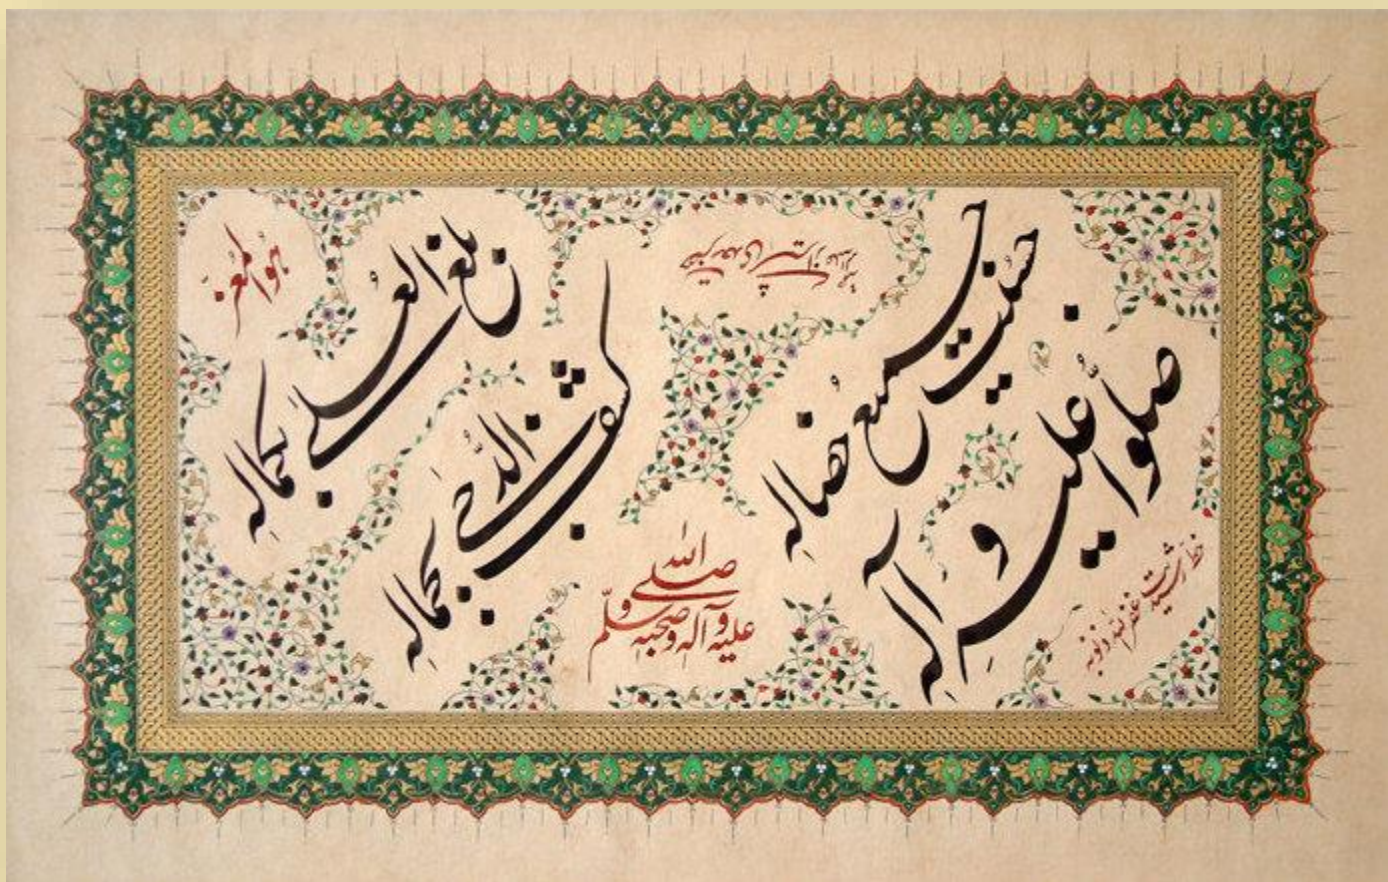 هو المعز
بلغ العلی بکماله
کشف الدجی بجماله
حسنت جمیع خصاله
صلوا علیه و آله
صلی الله
علیه وآله وصحبه وسلم